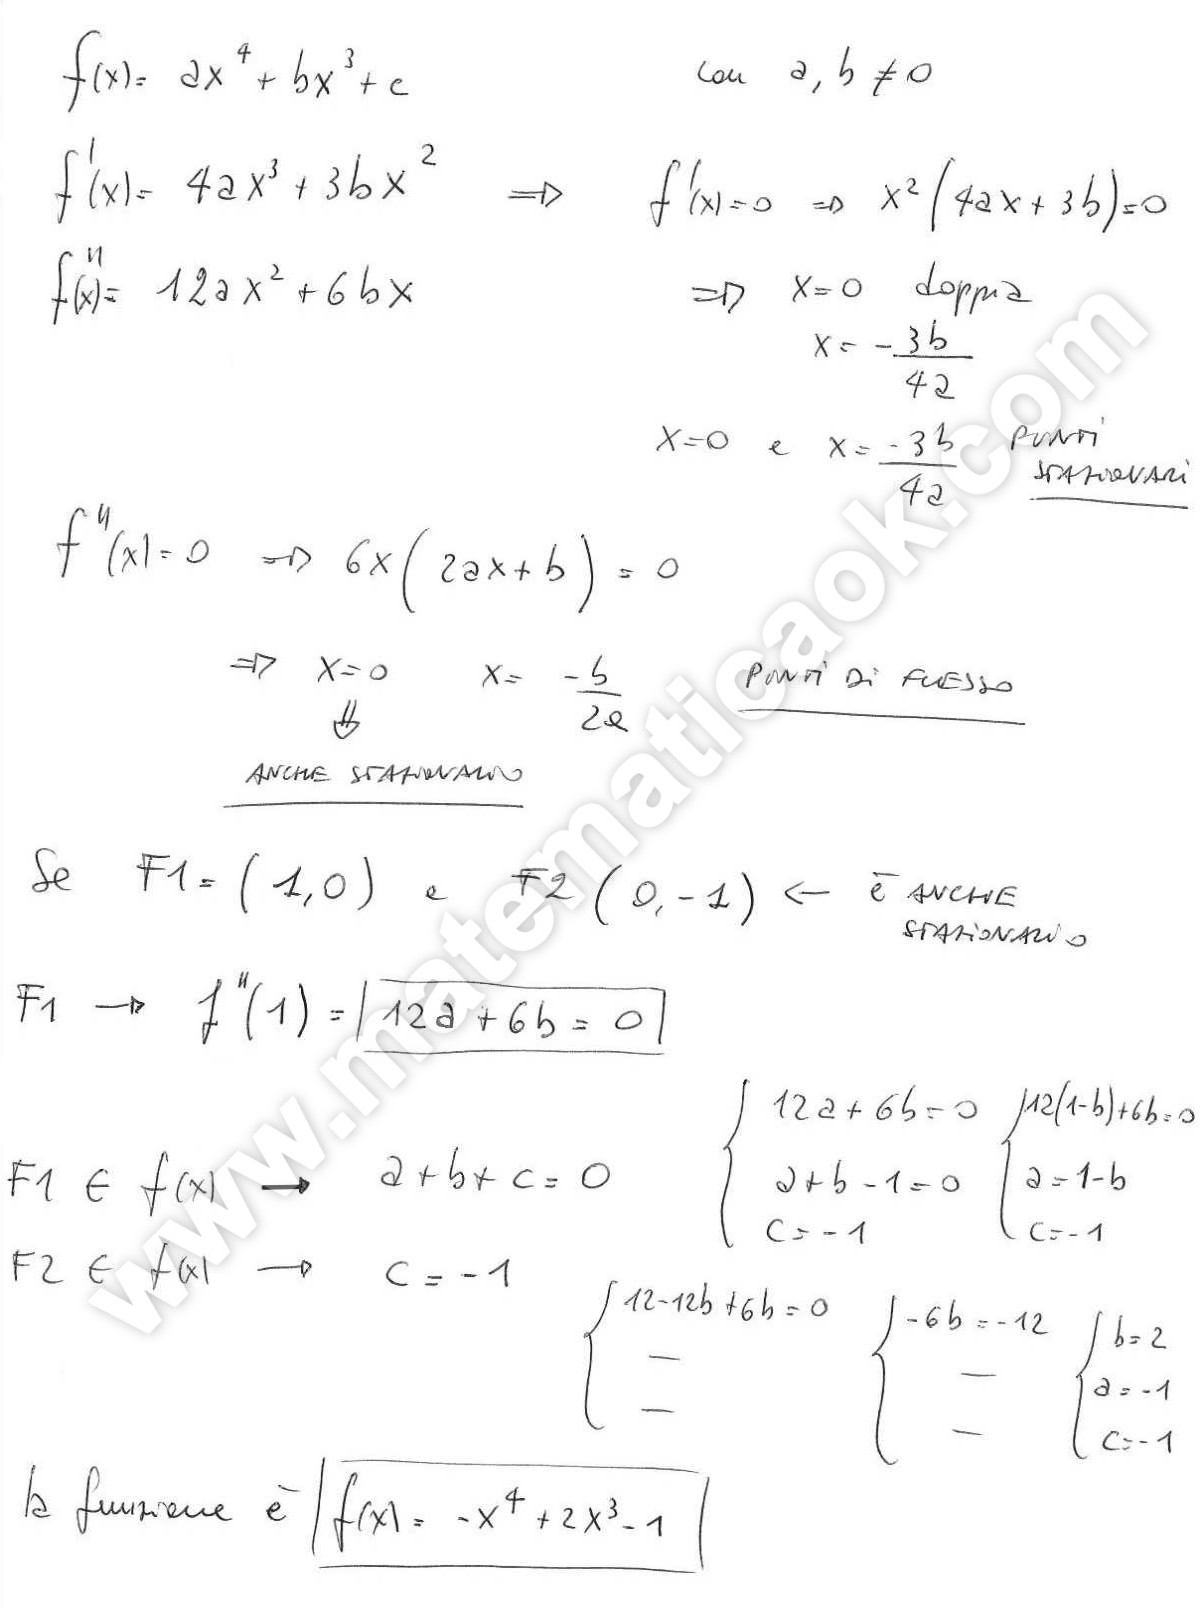 f(x)= ax⁴ + bx³ + c con a, b ≠ 0
f'(x)= 4ax³ + 3bx² ⇒ f'(x)=0 ⇒ x²(4ax + 3b)=0
f''(x)= 12ax² + 6bx ⇒ x=0 doppia
x = -3b/4a
x=0 e x= -3b/4a PUNTI
STAZIONARI
f''(x)=0 ⇒ 6x(2ax+b)=0
⇒ x=0 x= -b/2a PUNTI DI FLESSO
⇓
ANCHE STAZIONARIO
Se F1=(1,0) e F2(0,-1) ← è ANCHE
STAZIONARIO
F1 → f''(1)= 12a + 6b = 0
F1 ∈ f(x) → a+b+c=0 { 12a+6b=0 { 12(1-b)+6b=0
a+b-1=0 a=1-b
c=-1 c=-1
F2 ∈ f(x) → c=-1
{ 12-12b+6b=0 { -6b=-12 { b=2
— — a=-1
— — c=-1
la funzione è f(x)= -x⁴ + 2x³ - 1
www.matematicaok.com